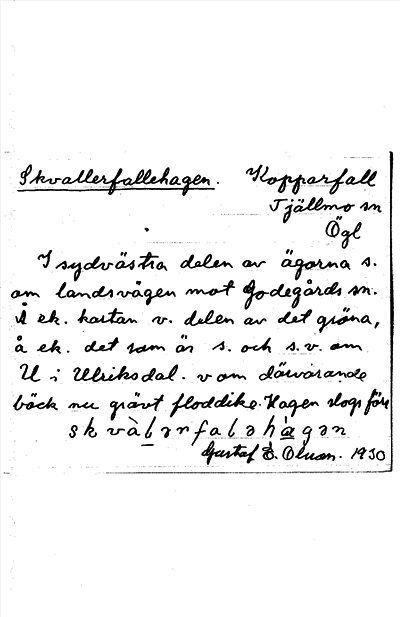 Skvallerfallehagen. Kopparfall
Tjällmo sn
Ögl
I sydvästra delen av ägorna s.
om landsvägen mot Godegårds sn.
Å ek. kartan v. delen av det gröna,
å ek. det som är s. och s.v. om
U i Ulriksdal. v om därvarande
bäck nu grävt floddike. Hagen slogs förr
skvàlərnfaləhàgən
Gustaf E. Olsson. 1930